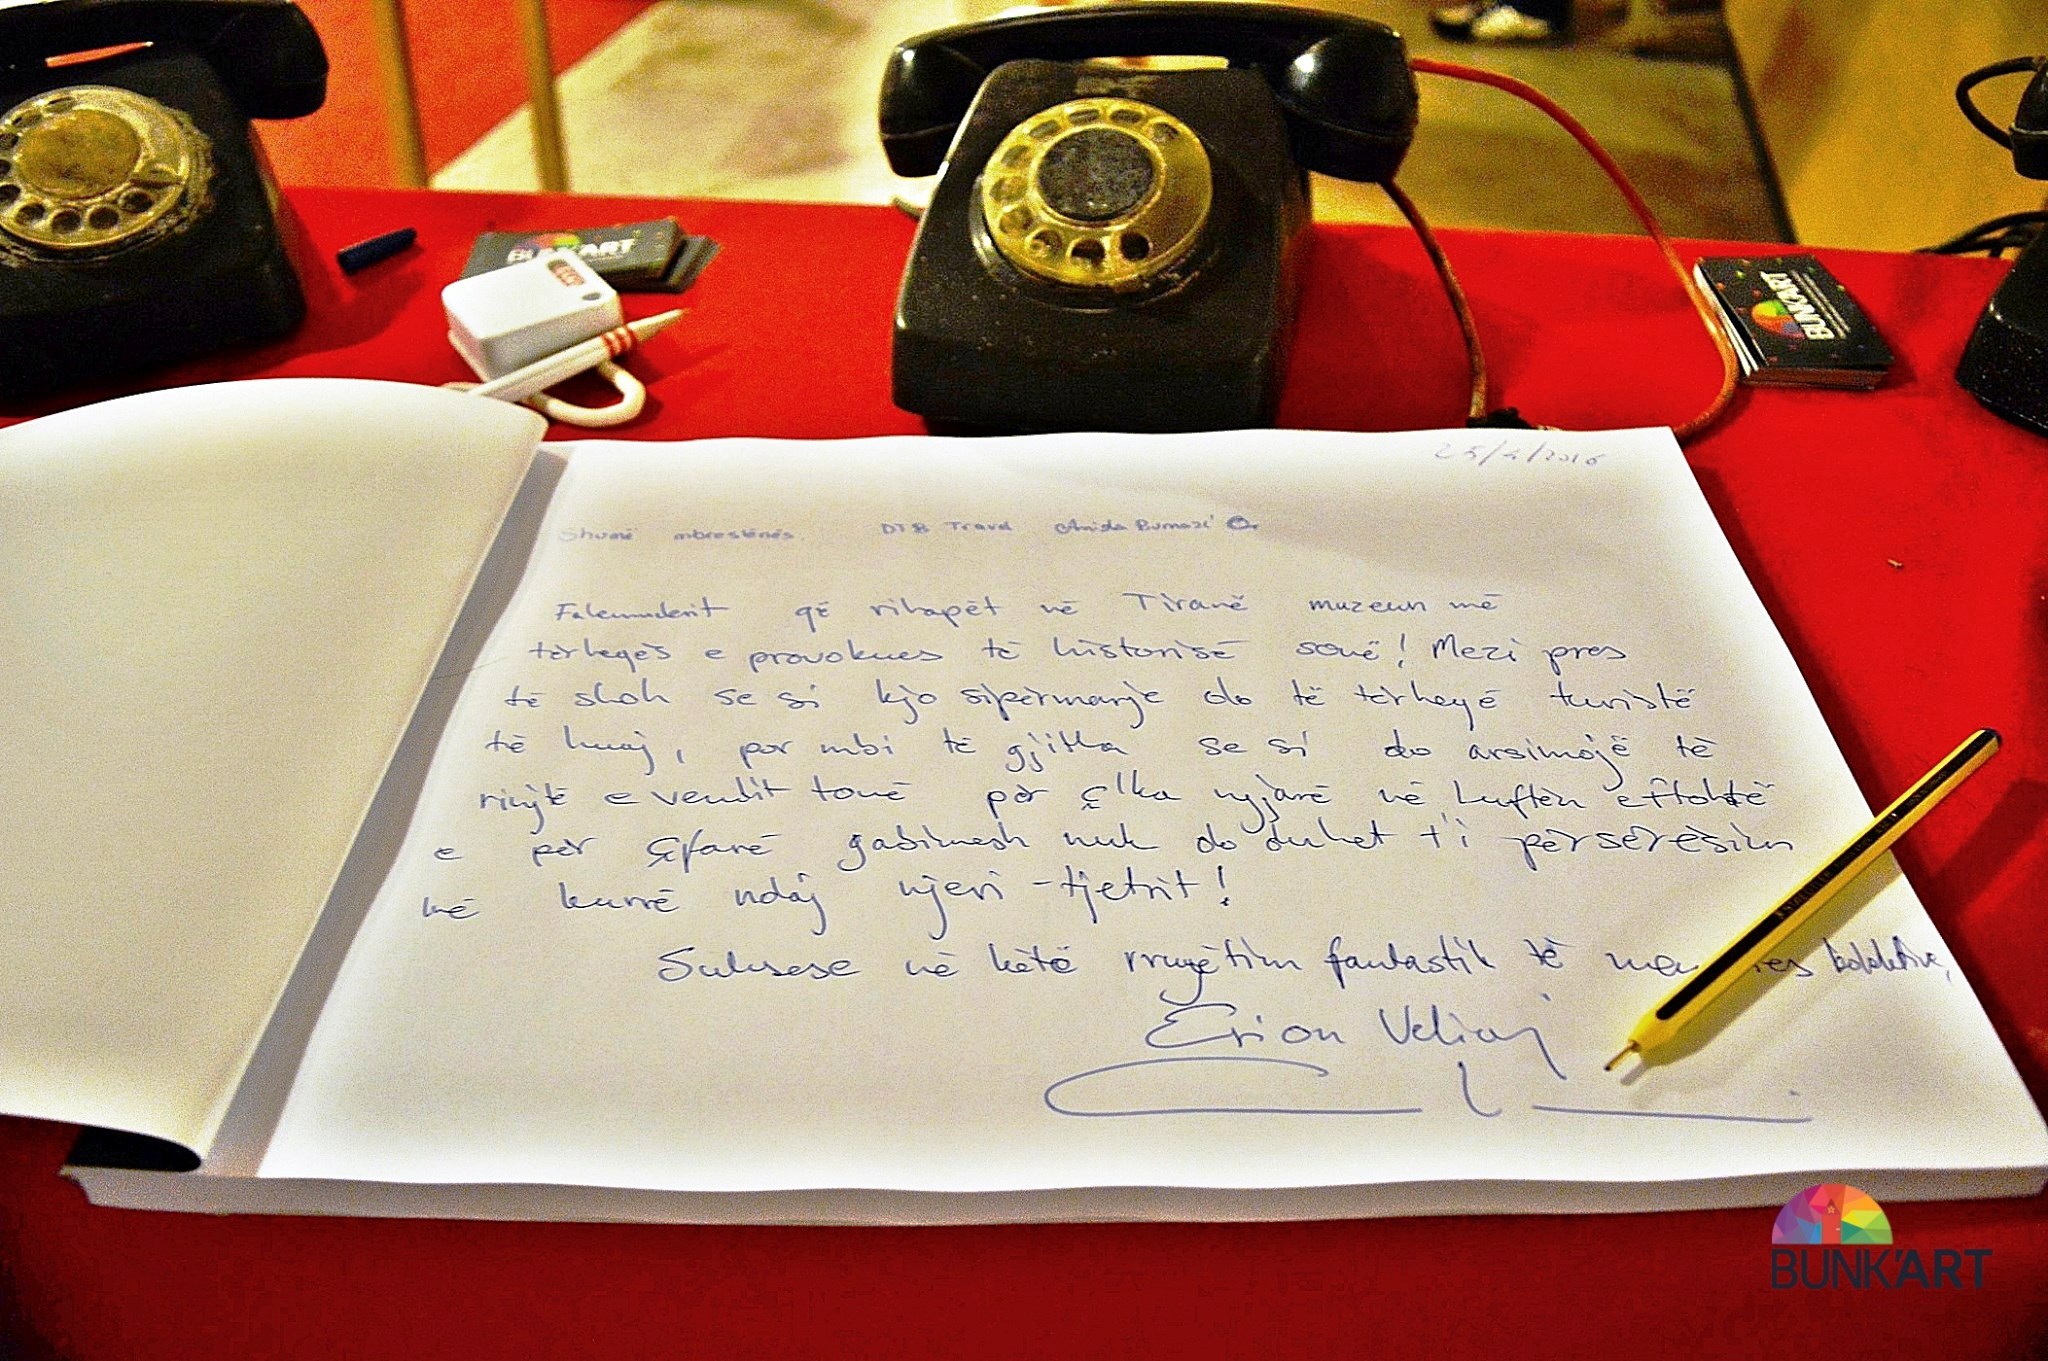 BUNK'ART
BUNK'ART
25/4/2016
Shumë mbreslënës. DTB Travel
Falemnderit që rihapët në Tiranë muzeun më
tërheqës e provokues të historisë sonë! Mezi pres
të shoh se si kjo sipërmarrje do të tërheqë turistë
të huaj, por mbi të gjitha se si do arsimojë të
rinjtë e vendit tonë për ç'ka ngjarë në Luftën e ftohtë
e për çfarë gabimesh nuk do duhet t'i përsërësim
më kurrë ndaj njeri-tjetrit!
Suksese në këtë rrugëtim fantastik të
Erion Veliaj
STAEDTLER
BUNK'ART